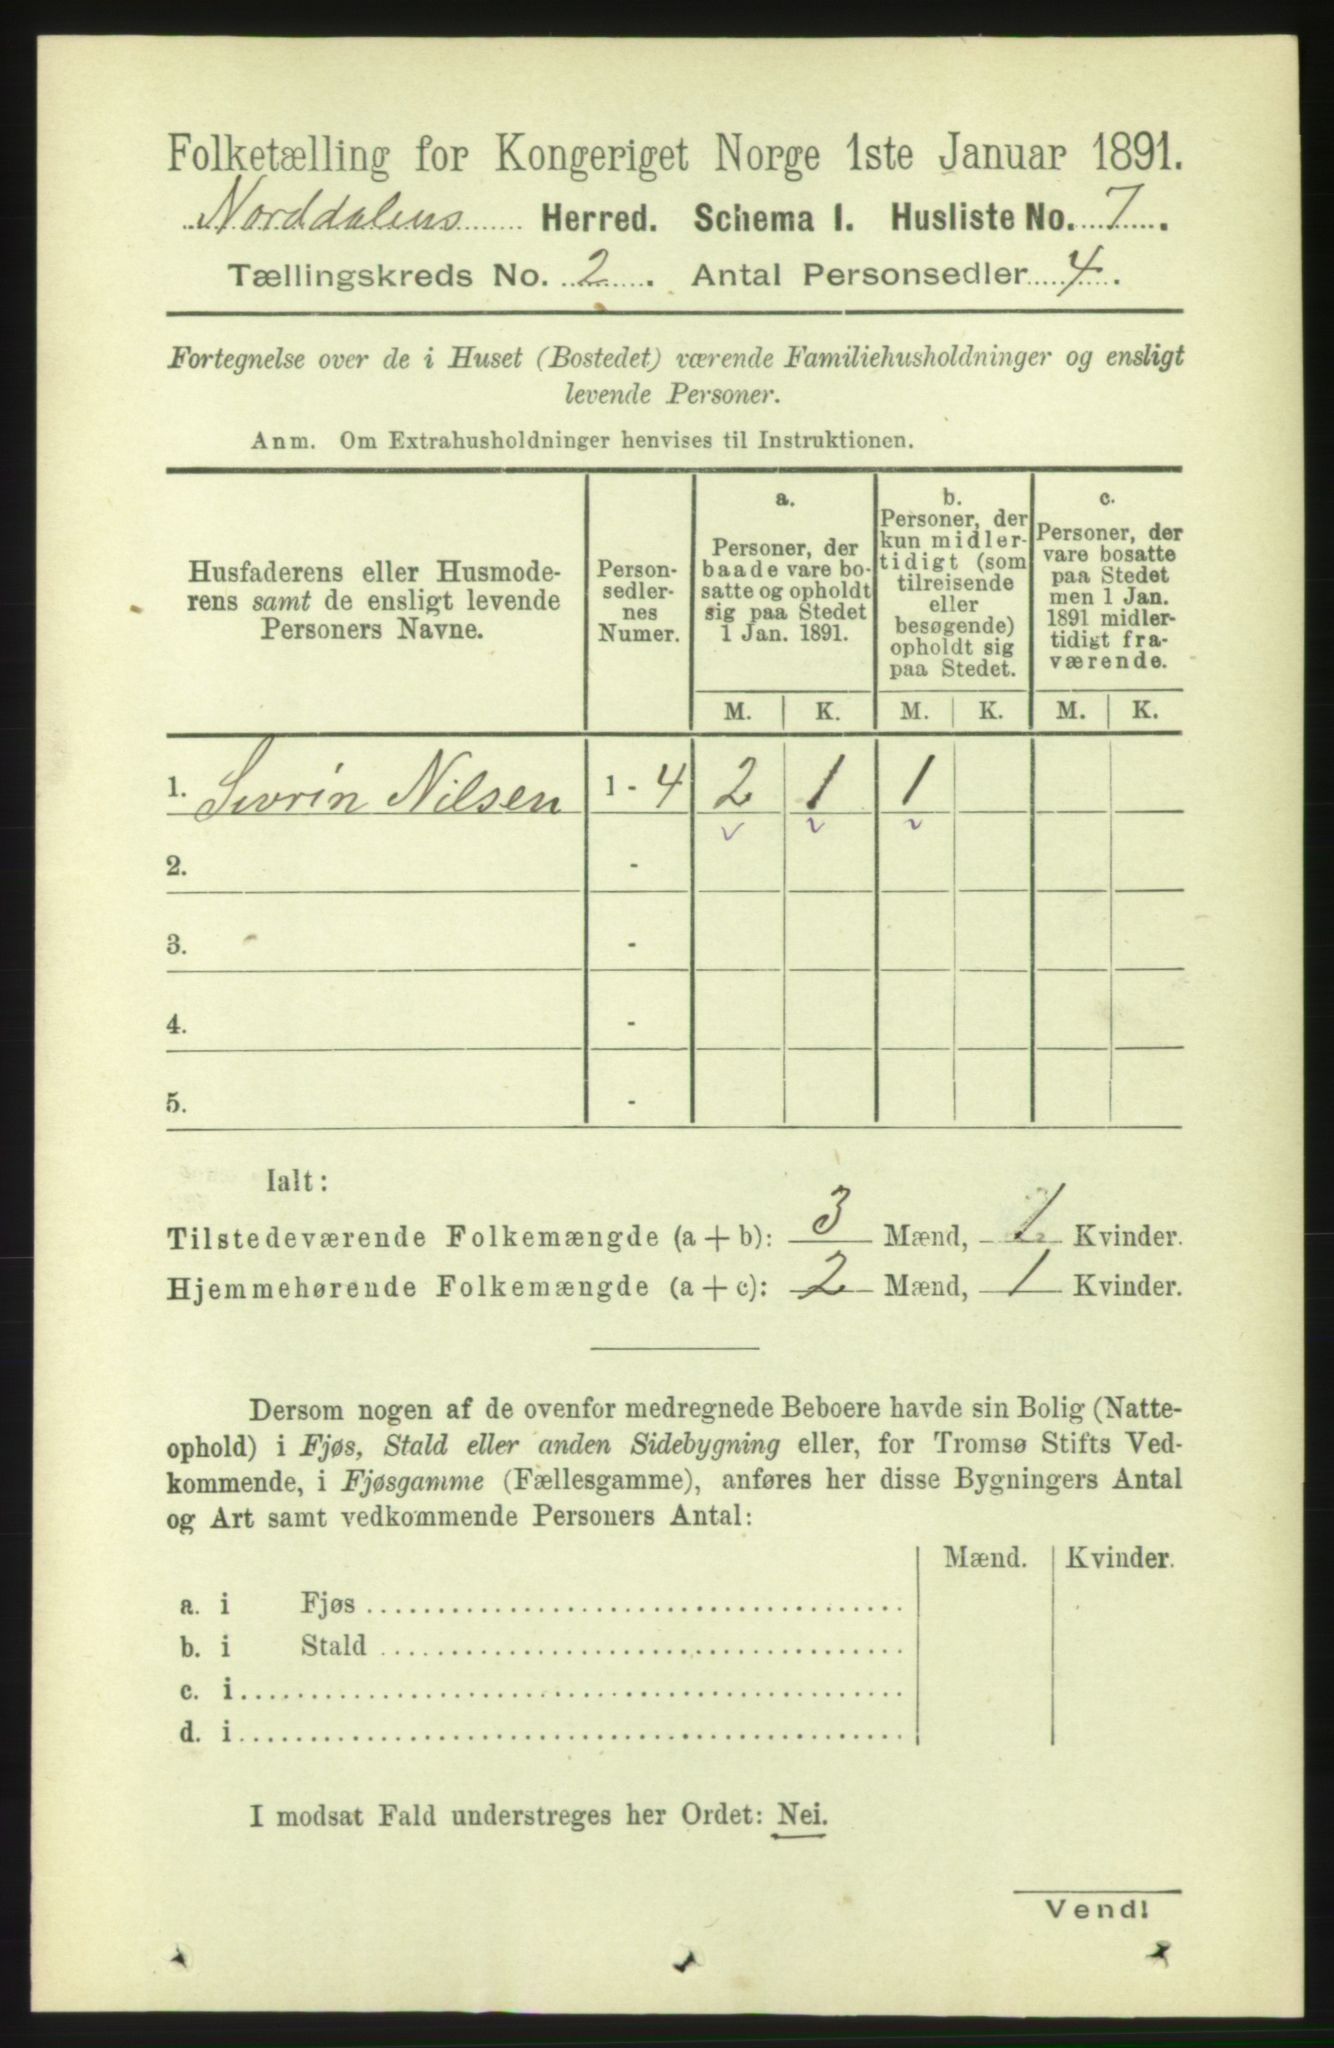 Folketælling for Kongeriget Norge 1ste Januar 1891.
Norddalens Herred. Schema I. Husliste No. 7.
Tællingskreds No. 2. Antal Personsedler 4.
Fortegnelse over de i Huset (Bostedet) værende Familiehusholdninger og ensligt
levende Personer.
Anm. Om Extrahusholdninger henvises til Instruktionen.
Husfaderens eller Husmode-
rens samt de ensligt levende
Personers Navne.
Person-
sedler-
nes
Numer.
a.
Personer, der
baade vare bo-
satte og opholdt
sig paa Stedet
1 Jan. 1891.
b.
Personer, der
kun midler-
tidigt (som
tilreisende
eller
besøgende)
opholdt sig
paa Stedet.
c.
Personer, der
vare bosatte
paa Stedet
men 1 Jan.
1891 midler-
tidigt fra-
værende.
M. K. M. K. M. K.
1. Sivrin Nilsen 1 - 4 2 1 1
2. -
3. -
4. -
5. -
Ialt:
Tilstedeværende Folkemængde (a + b): 3 Mænd, 1 Kvinder.
Hjemmehørende Folkemængde (a + c): 2 Mænd, 1 Kvinder.
Dersom nogen af de ovenfor medregnede Beboere havde sin Bolig (Natte-
ophold) i Fjøs, Stald eller anden Sidebygning eller, for Tromsø Stifts Ved-
kommende, i Fjøsgamme (Fællesgamme), anføres her disse Bygningers Antal
og Art samt vedkommende Personers Antal:
Mænd. Kvinder.
a. i Fjøs
b. i Stald
c. i
d. i
I modsat Fald understreges her Ordet: Nei.
Vend!